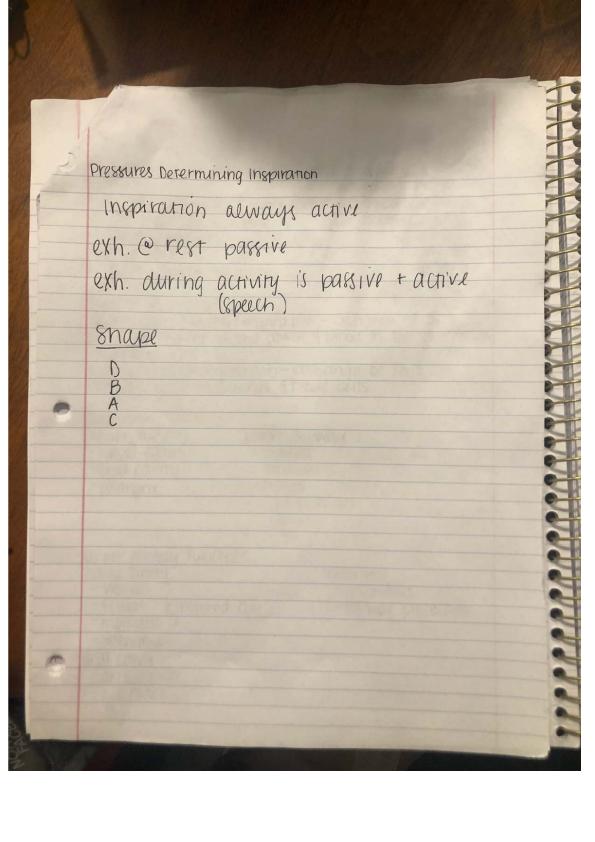 Pressures Determining Inspiration
Inspiration always active
exh. @ rest passive
exh. during activity is passive + active
(speech)
Shape
D
B
A
C